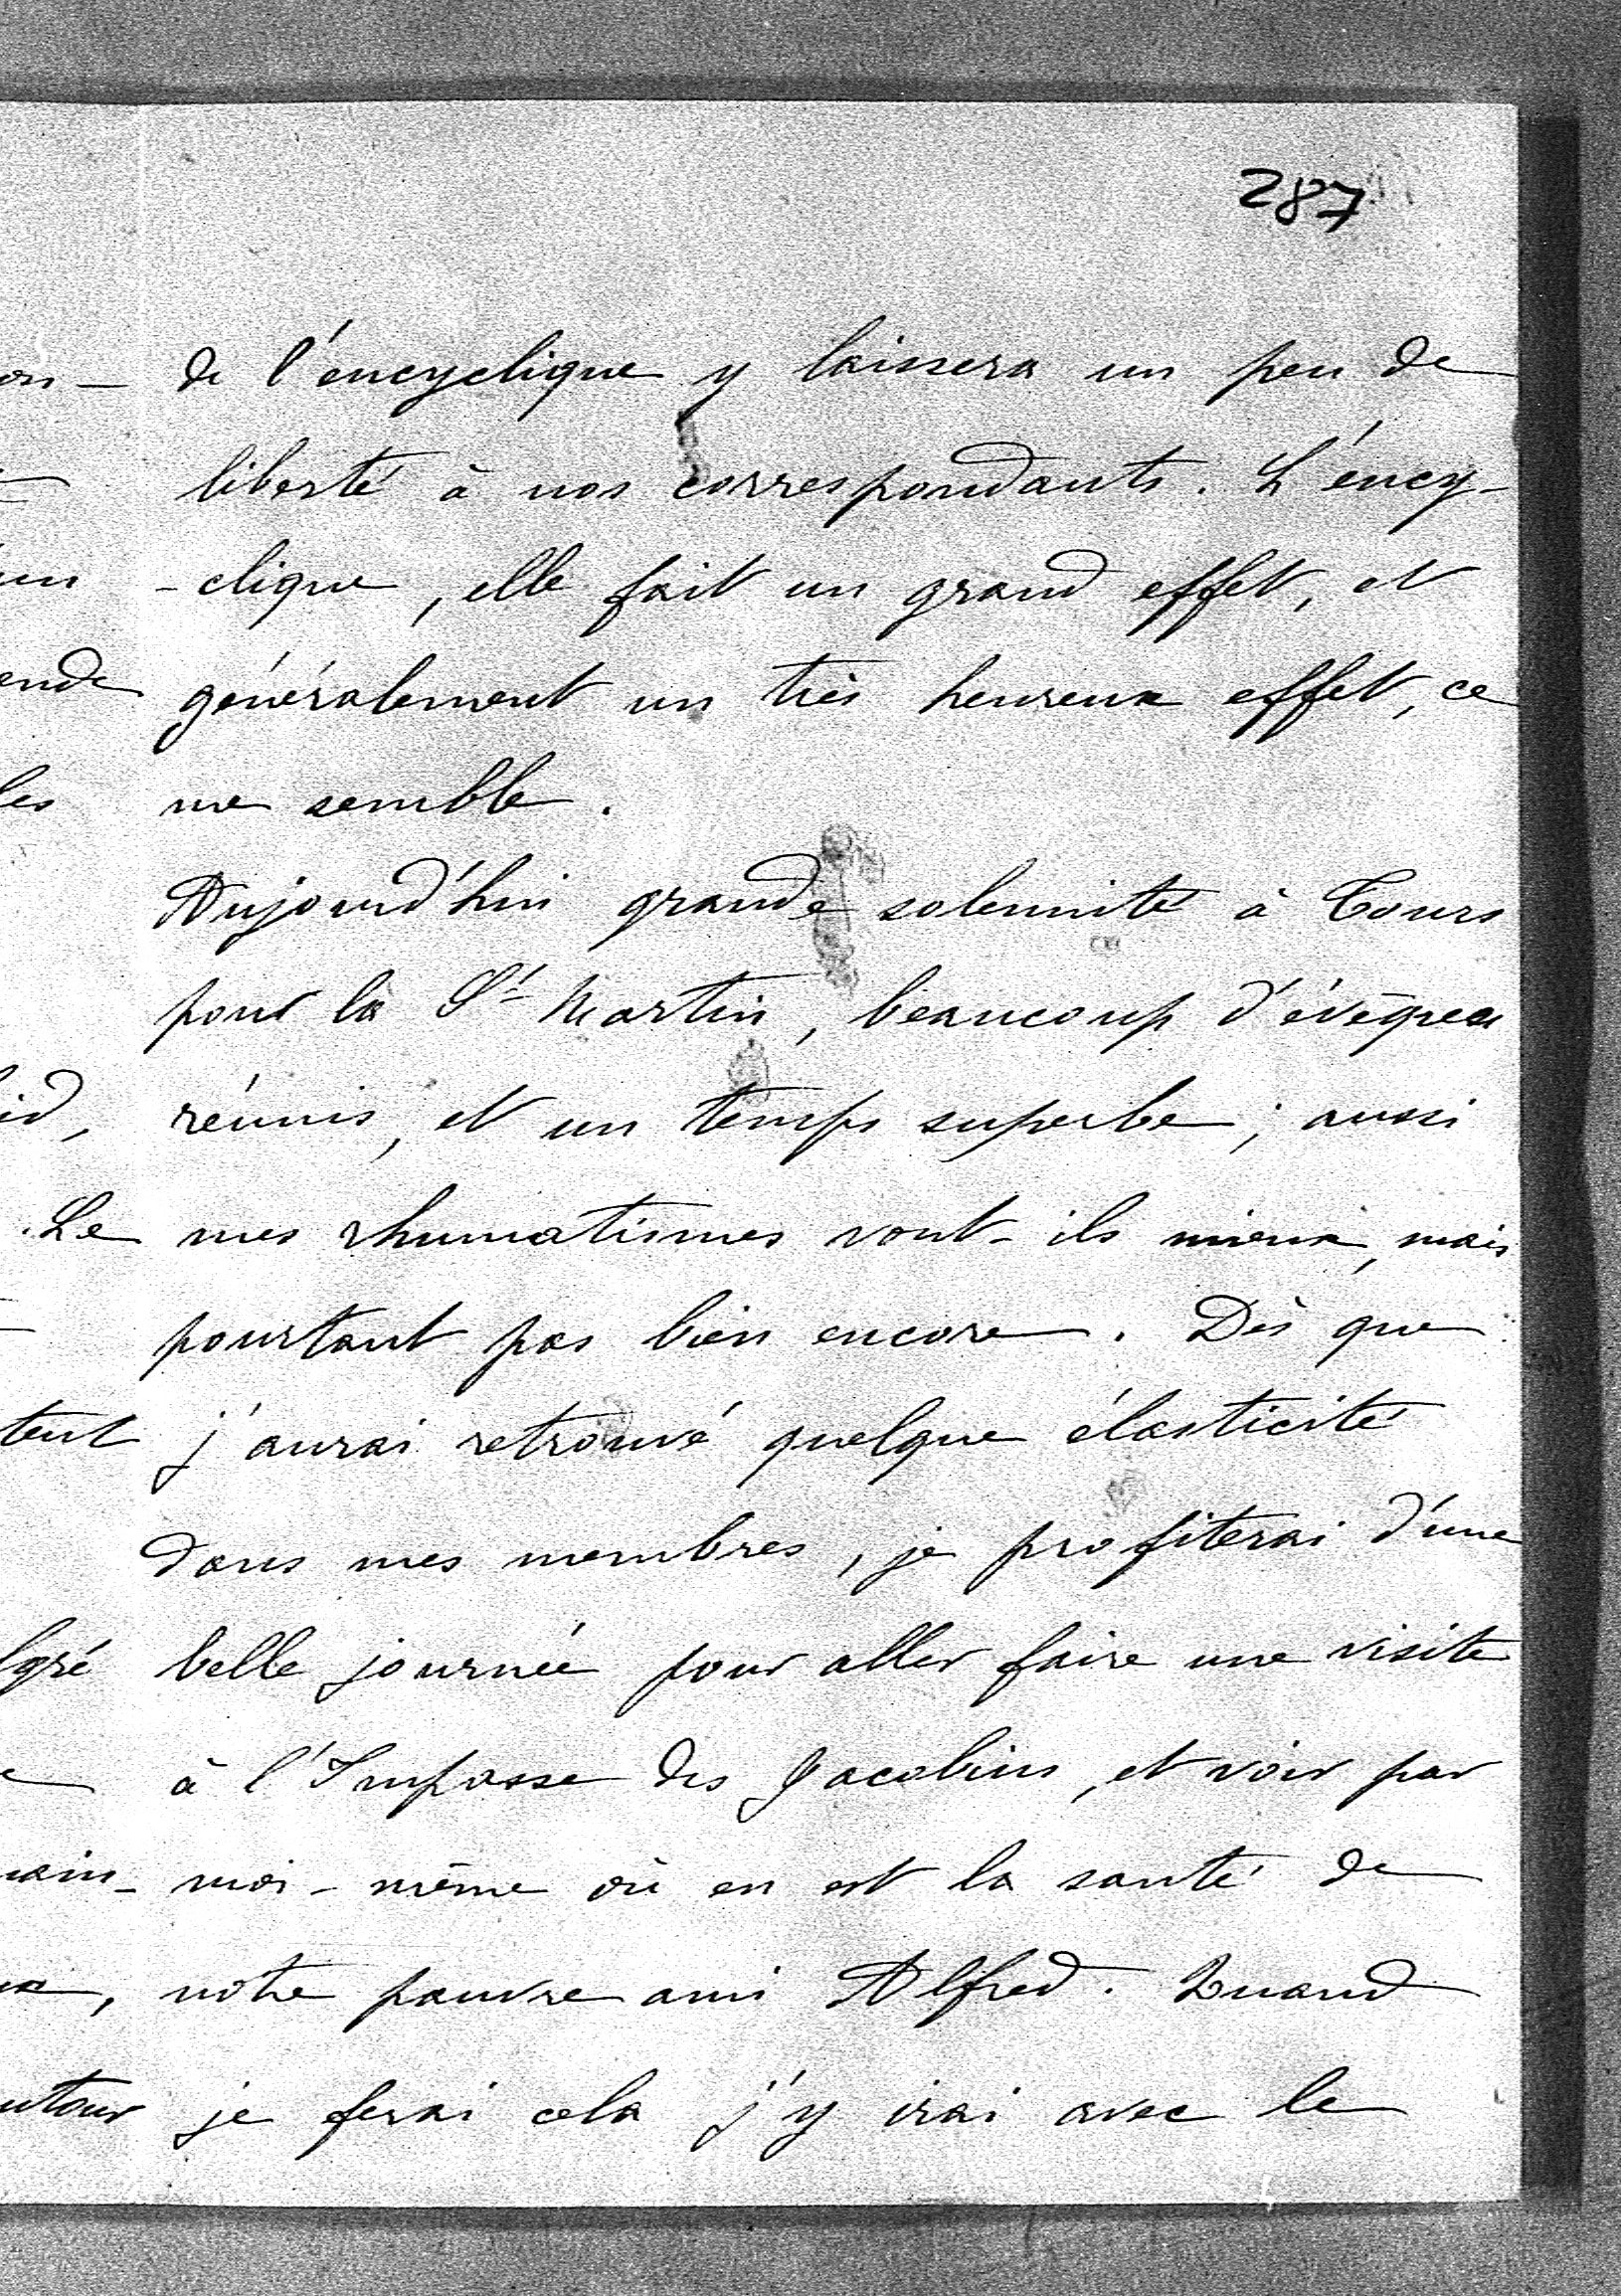 287
de l'encyclique y laissera un peu de
liberté à nos correspondants. L'ency-
-clique, elle fait un grand effet, et
généralement un très heureux effet, ce
me semble.
Aujourd'hui grande solennité à Tours
pour la St Martin, beaucoup d'évêques
réunis, et un temps superbe; aussi
mes rhumatismes vont-ils mieux, mais
pourtant pas bien encore. Dès que
j'aurai retrouvé quelque élasticité
dans mes membres, je profiterai d'une
belle journée pour aller faire une visite
à l'Impasse des Jacobins, et voir par
moi-même où en est la santé de
notre pauvre ami Alfred. Quand
je ferai cela j'y irai avec le